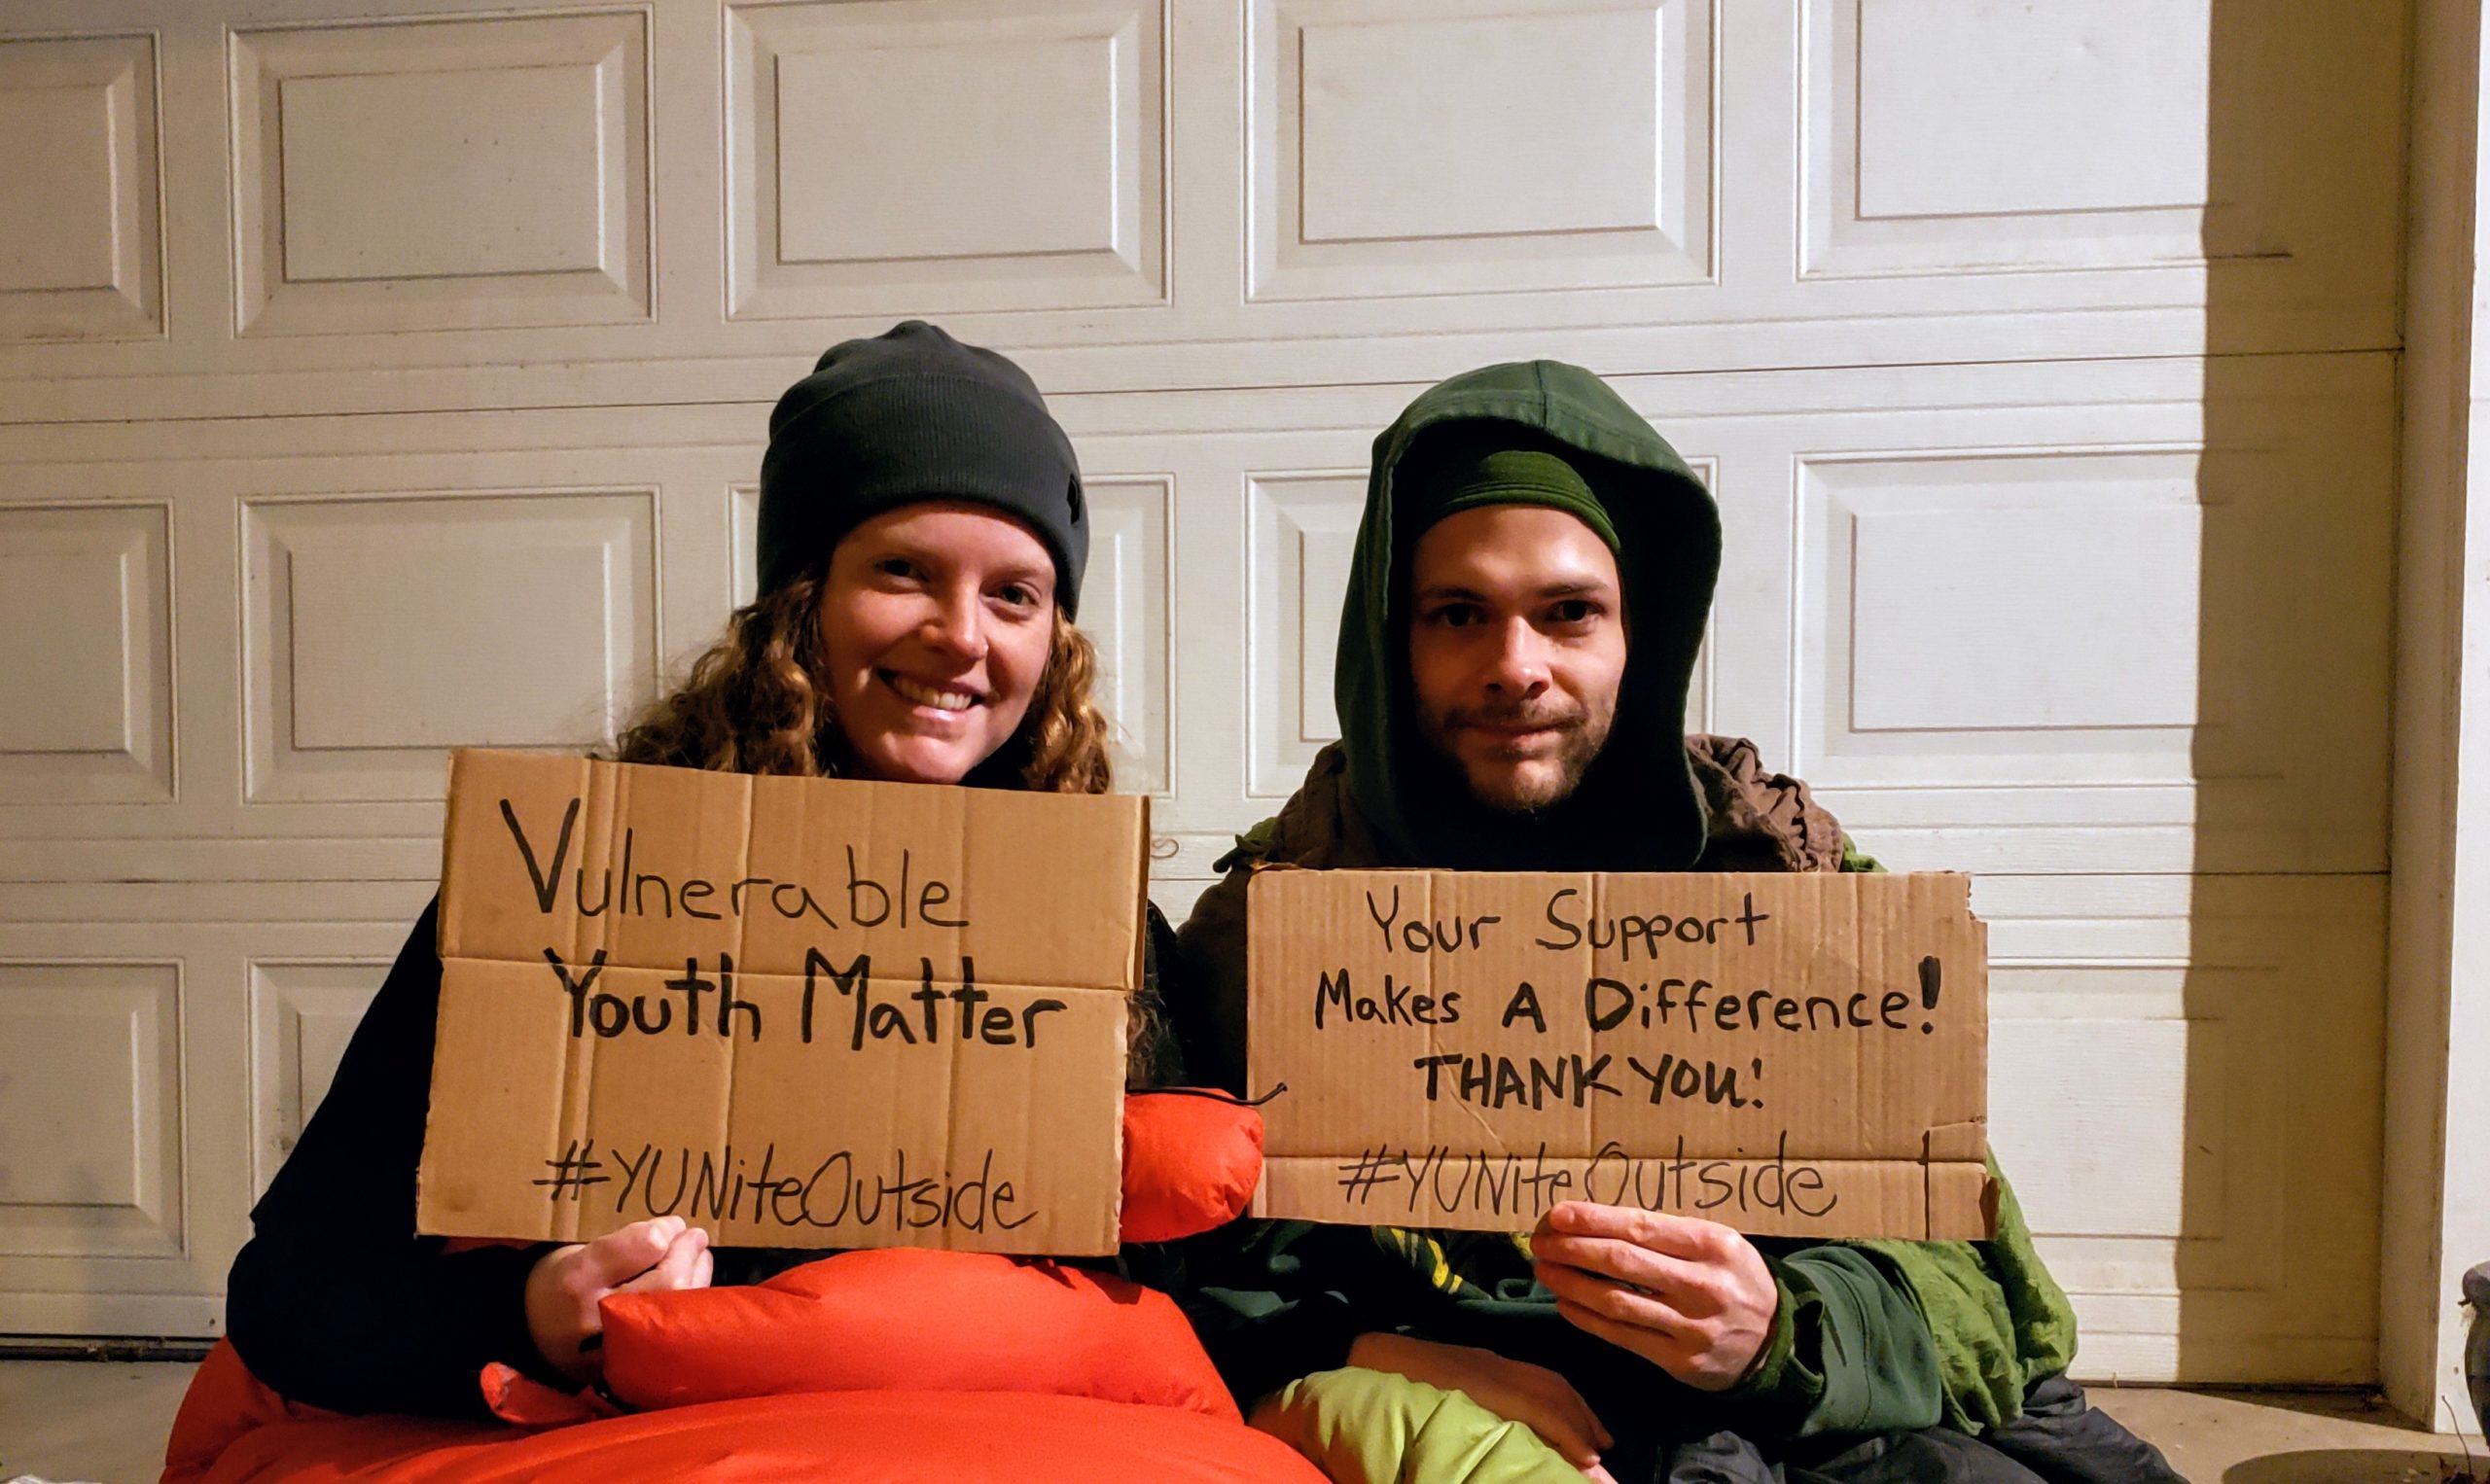 Vulnerable
Youth Matter
#YUNiteOutside
Your Support
Makes A Difference!
THANK YOU!
#YUNiteOutside